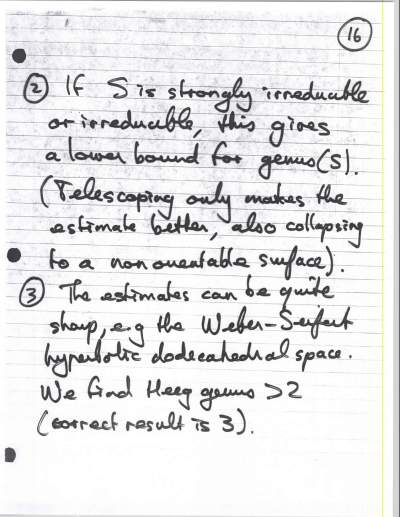 16
② If S is strongly irreducible
or irreducible, this gives
a lower bound for genus(S).
(Telescoping only makes the
estimate better, also collapsing
to a nonorientable surface).
③ The estimates can be quite
sharp, e.g the Weber-Seifert
hyperbolic dodecahedral space.
We find Heeg genus >2
(correct result is 3).